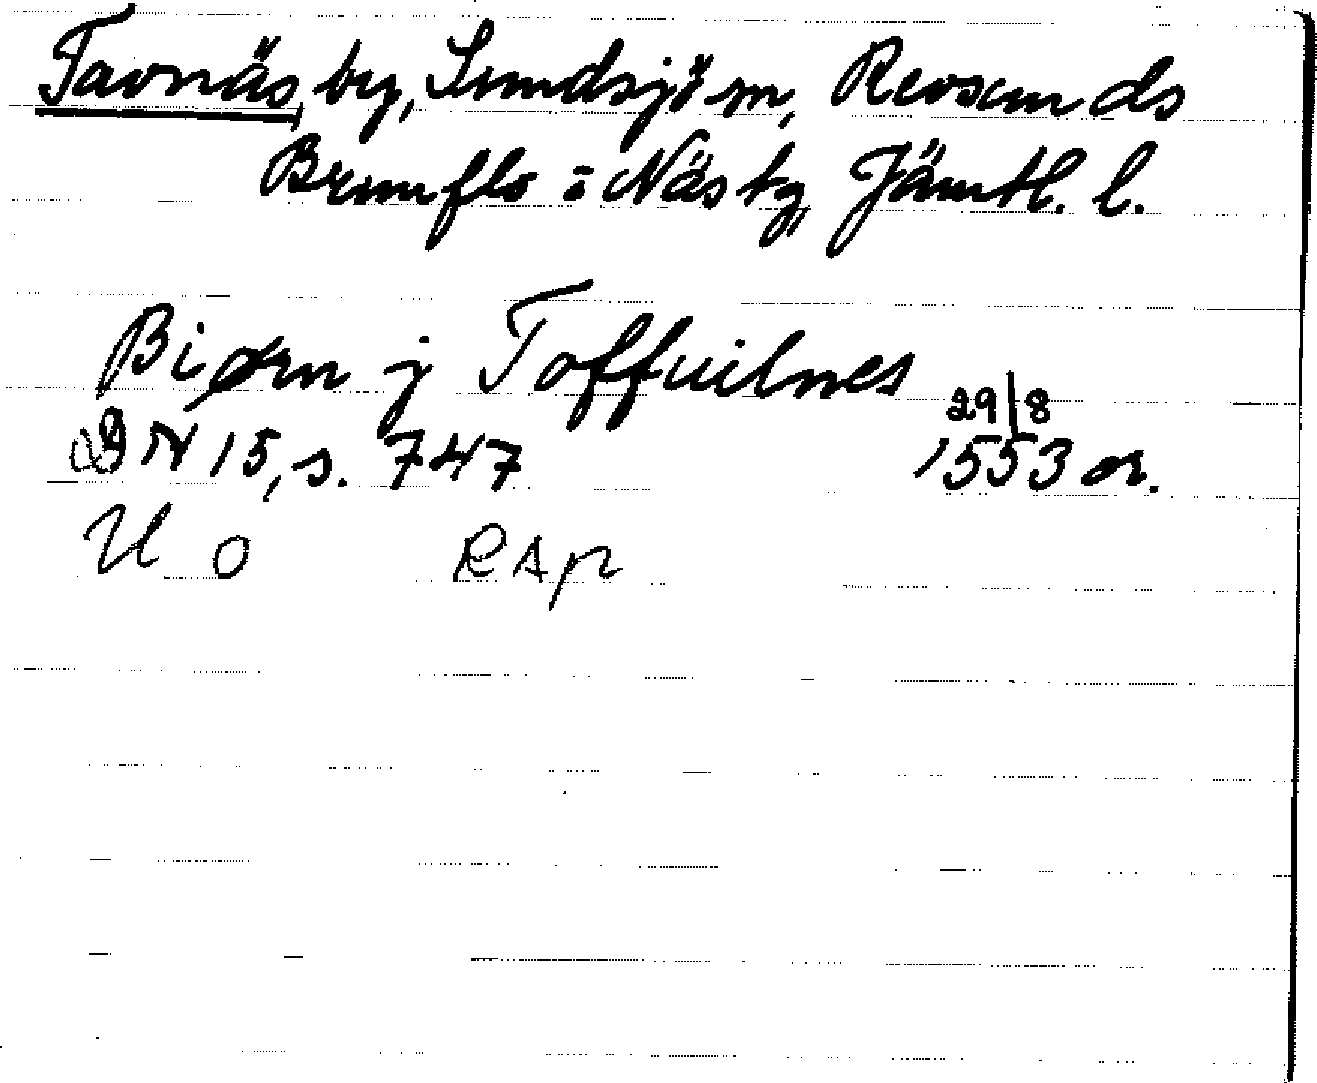 Tavnäs, by, Sundsjö sn, Revsunds
Brunflo o Näs tg, Jämtl. l.
Biørn j Toffuilnes
29/8
DN 15, s. 747 1553 or.
U O RAp